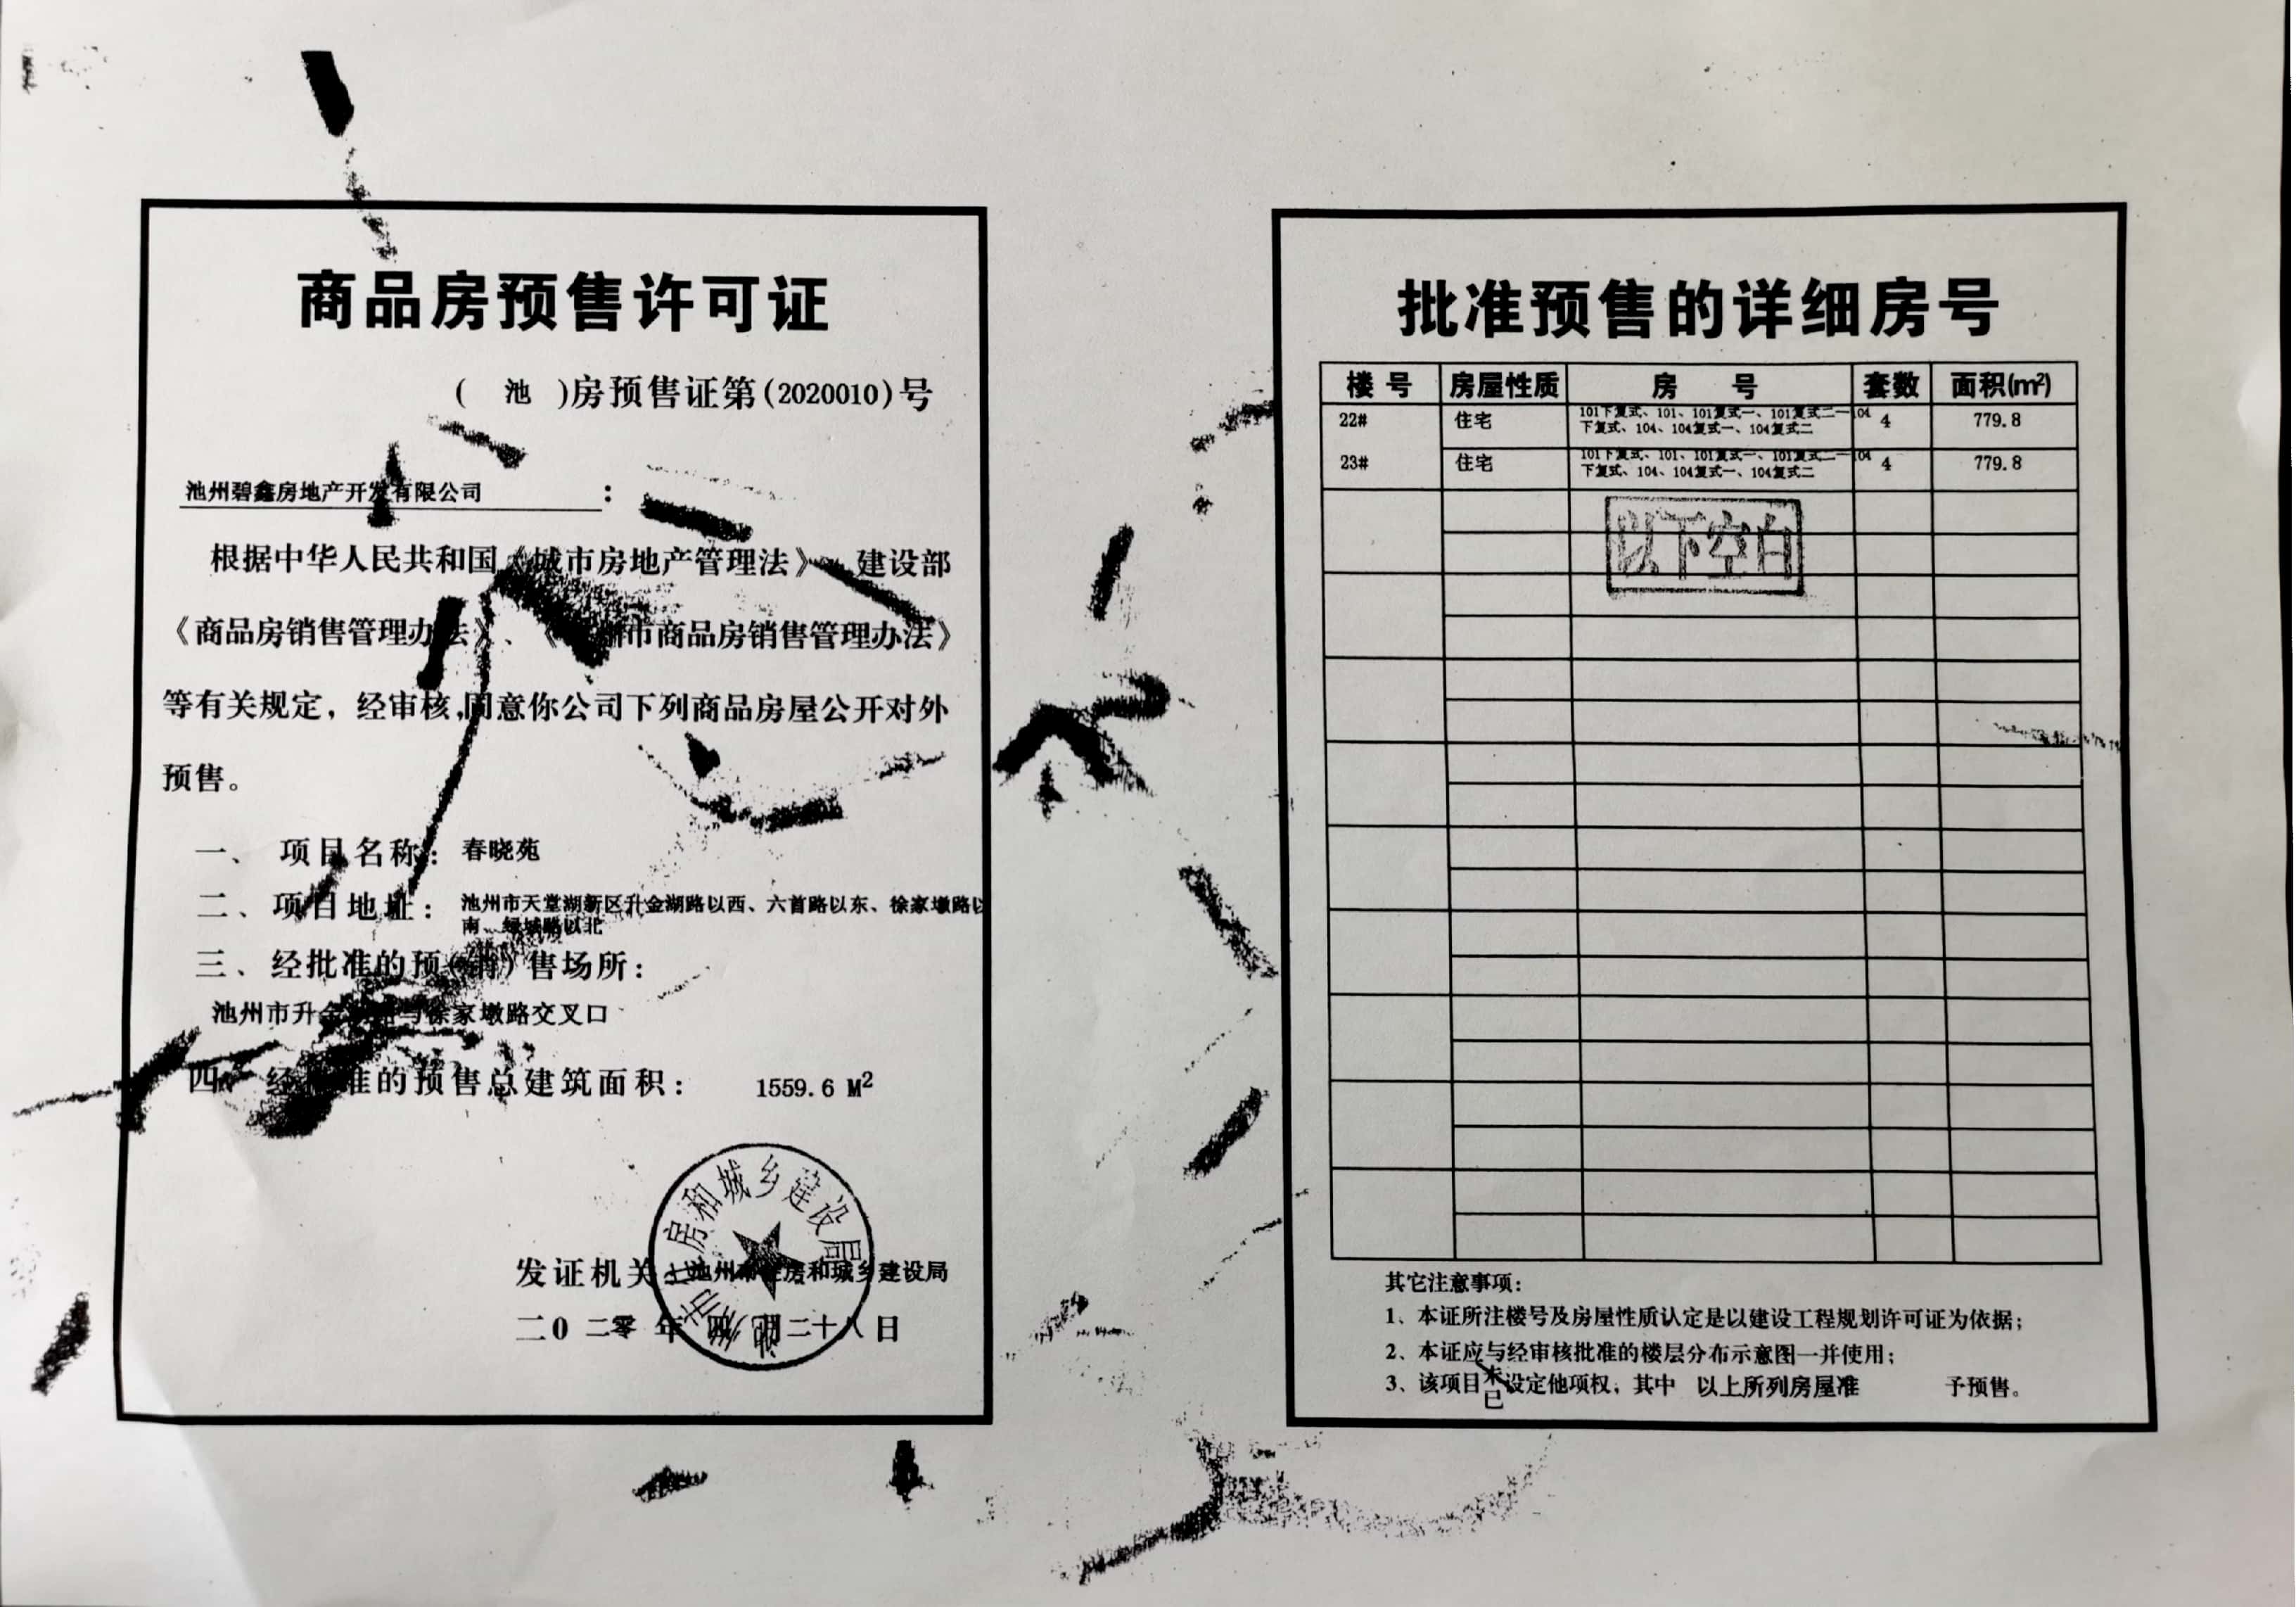 商品房预售许可证
( 池 )房预售证第(2020010)号
池州碧鑫房地产开发有限公司 :
根据中华人民共和国《城市房地产管理法》、建设部
《商品房销售管理办法》、《 州市商品房销售管理办法》
等有关规定，经审核,同意你公司下列商品房屋公开对外
预售。
一、项目名称： 春晓苑
二、项目地址： 池州市天堂湖新区升金湖路以西、六首路以东、徐家墩路以
南、绿城路以北
三、经批准的预(销)售场所：
池州市升金湖路与徐家墩路交叉口
四、经批准的预售总建筑面积： 1559.6 M²
发证机关 池州市住房和城乡建设局
二0二零 年 月二十八日
池州市住房和城乡建设局
批准预售的详细房号
楼号 房屋性质 房号 套数 面积(m²)
22# 住宅 101下复式、101、101复式一、101复式二一104 4 779.8
下复式、104、104复式一、104复式二
23# 住宅 101下复式、101、101复式一、101复式二一104 4 779.8
下复式、104、104复式一、104复式二
以下空白
其它注意事项：
1、本证所注楼号及房屋性质认定是以建设工程规划许可证为依据；
2、本证应与经审核批准的楼层分布示意图一并使用；
3、该项目未设定他项权，其中 以上所列房屋准 予预售。
已